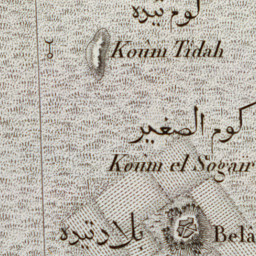 كوم تيده
Koûm Tidah
كوم الصغير
Koûm el Sogaïr
بلاد تيده
Belâ